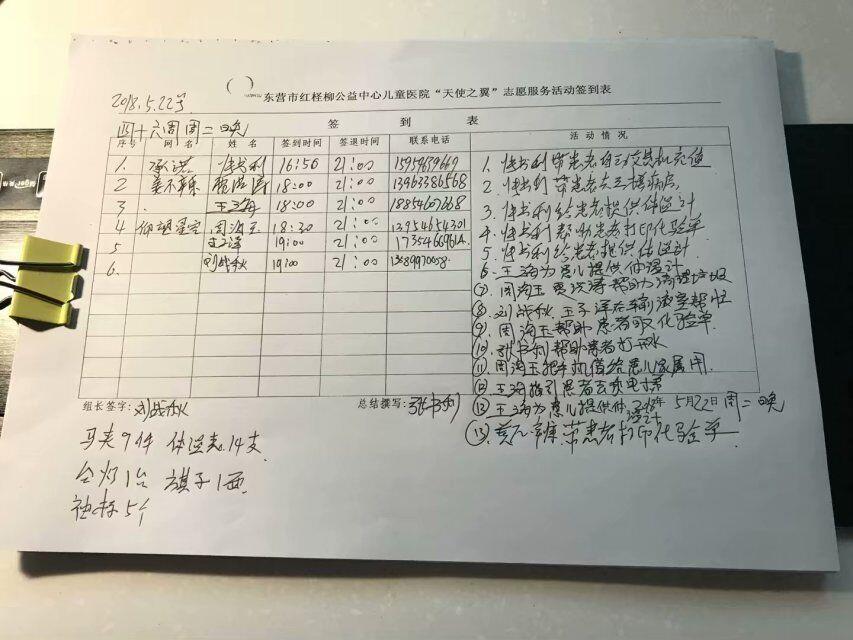 ( ) 东营市红柽柳公益中心儿童医院“天使之翼”志愿服务活动签到表
2018.5.22号
四十六周周二晚
签 到 表
序号 网 名 姓 名 签到时间 签退时间 联系电话 活 动 情 况
1. 承诺 张书利 16:50 21:00
2 18:00 21:00 13963386568
3. 王海 18:00 21:00 18854667668
4 仰望星空 周海玉 18:30 21:00 13954654301
5 王子洋 19:00 21:00
6. 刘战秋 19:00 21:00
1. 张书利带患者自动交费机充值
2 张书利带患者去三楼病房
3. 张书利给患者提供体温计
4. 张书利帮助患者打印化验单
5. 张书利给患者提供体温计
⑥ 王海为患儿提供体温计
⑦ 周海玉 帮助 清理垃圾
⑧ 刘战秋 王子洋在 帮忙
⑨ 周海玉帮助患者取化验单
⑩ 张书利帮助患者打开水
⑪ 周海玉把手机借给患儿家属用
⑫ 王海指引患者去乘电梯
⑫ 王海为患儿提供体温计 2018年5月22日周二晚
⑬ 带患者打印化验单
组长签字: 刘战秋 总结撰写: 张书利
马夹9件 体温表14支
台灯1台 旗子1面
袖标5个